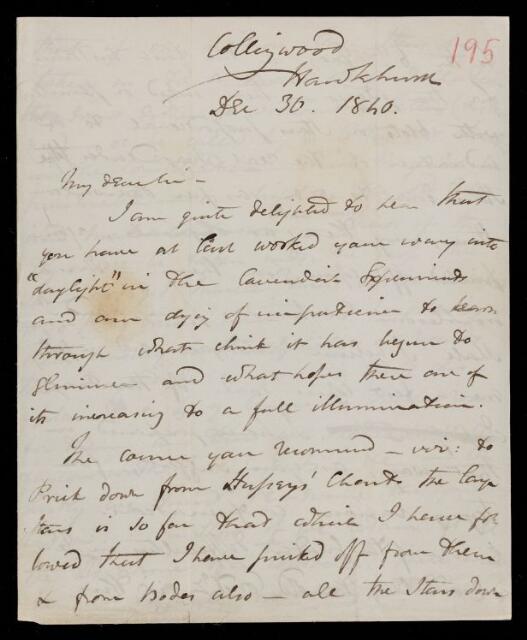 Collingwood
195
Hawkhurst
Dec 30. 1840.
My dear Sir –
I am quite delighted to hear that
you have at last worked your way into
"daylight" in the Cavendish Experiments
and am dying of impatience to learn
through what chink it has begun to
glimmer and what hopes there are of
its increasing to a full illumination.
The course you recommend – viz: to
Prick down from Hussey's Charts the large
stars is so far that which I have fol
lowed that I have pricked off from them
& from Bodes also – all the Stars down